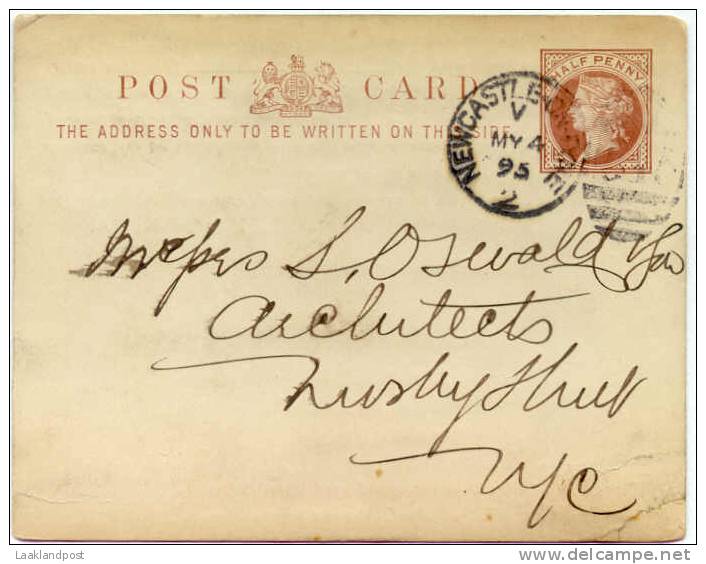 POST CARD
THE ADDRESS ONLY TO BE WRITTEN ON THIS SIDE
HALF PENNY
NEWCASTLE
V
MY 4
95
2
Messrs S. Oswald & Son
Architects
Street
N/C
Laaklandpost
www.delcampe.net